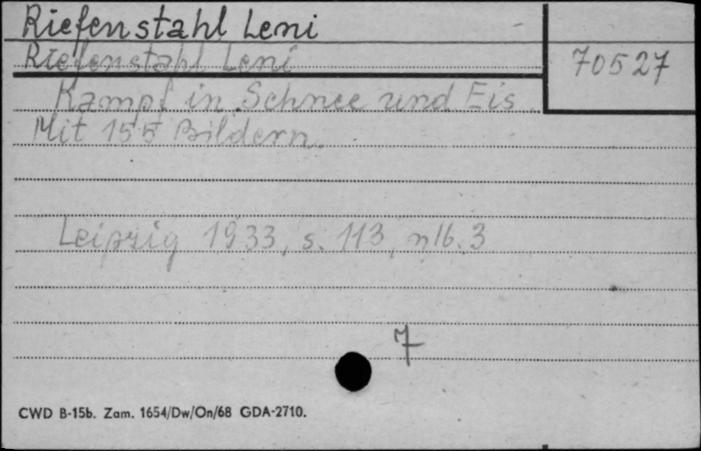 Riefenstahl Leni
Riefenstahl Leni
70527
Kampf in Schnee und Eis
Mit 155 Bildern.
Leipzig 1933, s. 113, nlb. 3
7
CWD B-15b. Zam. 1654/Dw/On/68 GDA-2710.